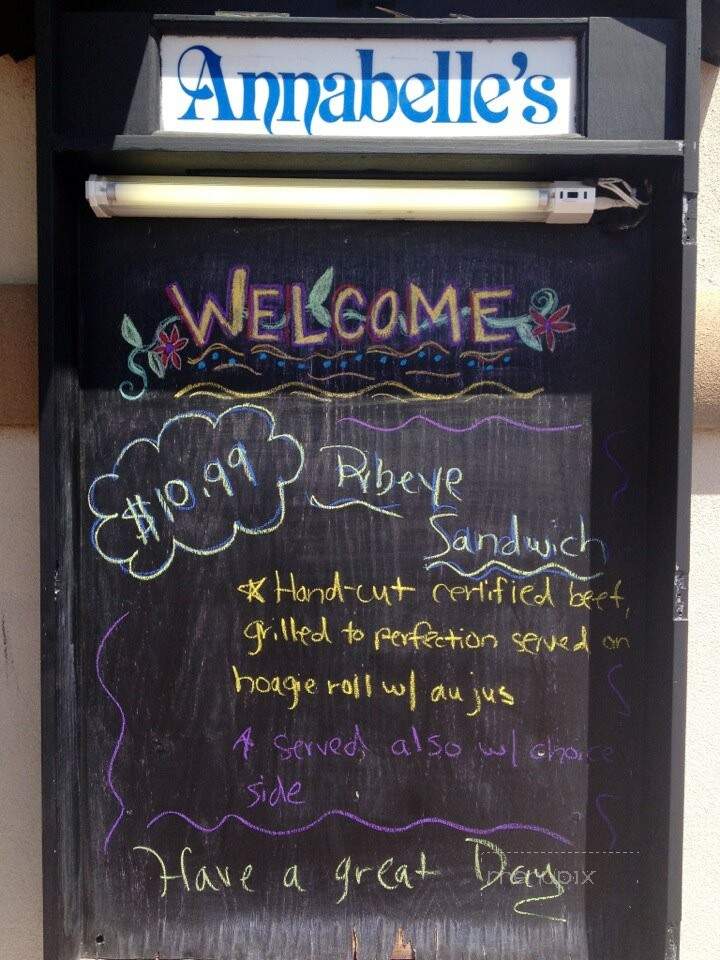 Annabelle's
WELCOME
$10.99
Ribeye
Sandwich
* Hand-cut certified beef,
grilled to perfection served on
hoagie roll w/ au jus
* served also w/ choice
side
Have a great Day
menupix